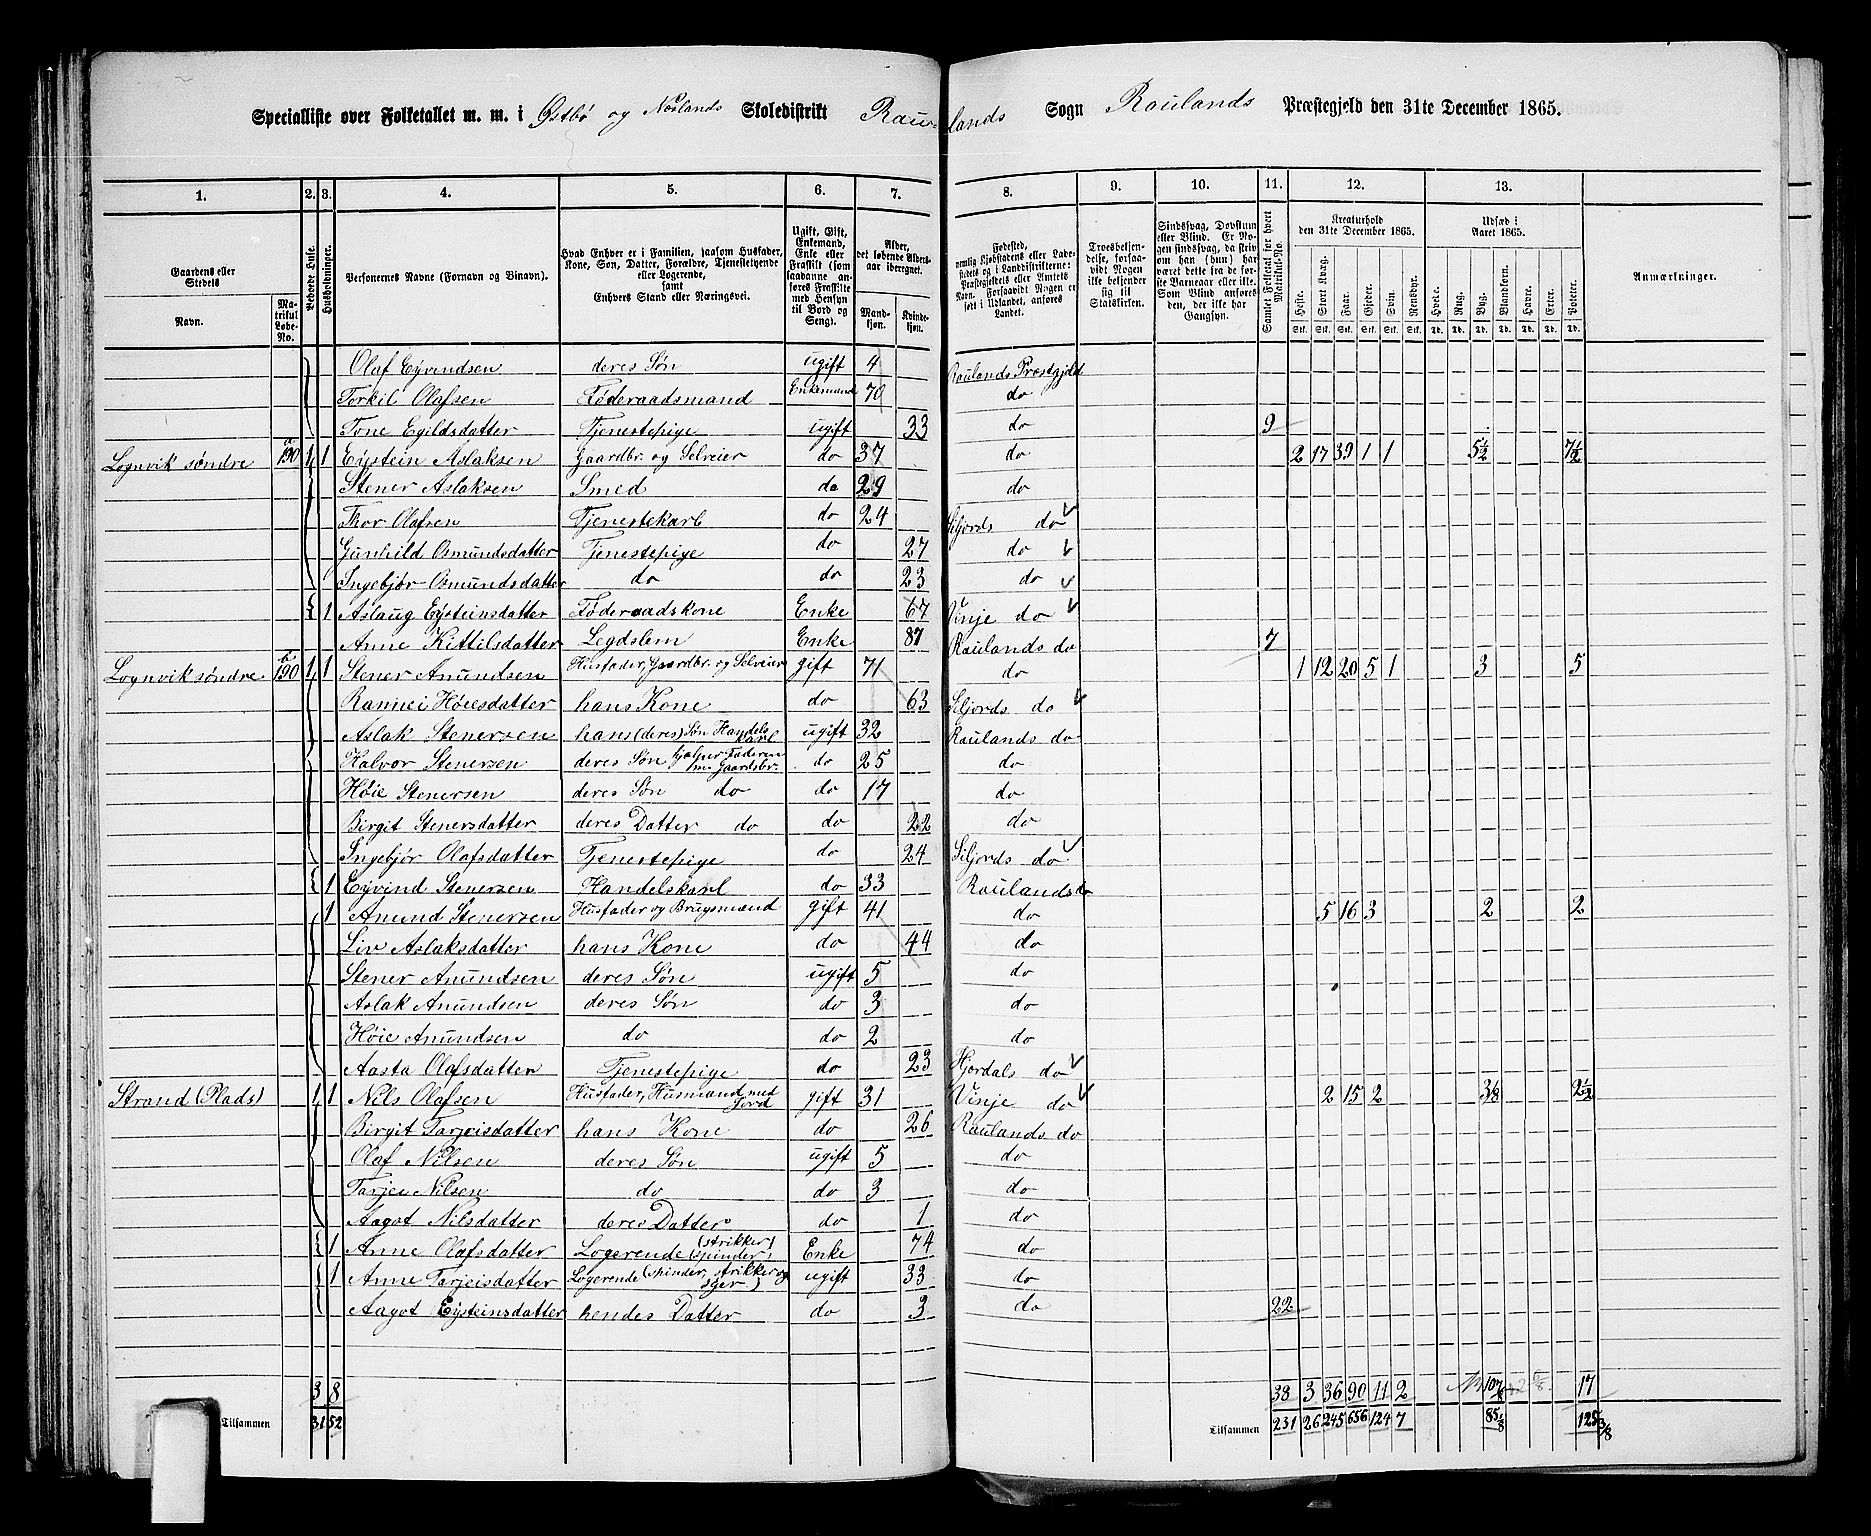 Specialliste over Folketallet m. m. i Østbø og Nøslands Skoledistrikt Raulands Sogn Raulands Præstegjeld den 31te December 1865.
1. 2. 3. 4. 5. 6. 7. 8. 9. 10. 11. 12. 13.
Gaardens eller Stedets Navn. Matrikul Løbe-No. Beboede Huse. Husholdninger. Personernes Navne (Fornavn og Binavn). Hvad Enhver er i Familien, saasom Husfader, Kone, Søn, Datter, Forældre, Tjenestetyende eller Logerende, samt Enhvers Stand eller Næringsvei. Ugift, Gift, Enkemand, Enke eller Fraskilt (som saadanne anføres Fraskilte med Hensyn til Bord og Seng). Alder, det løbende Alders-aar iberegnet. Mandkjøn. Kvindekjøn. Fødested, nemlig Kjøbstadens eller Ladestedets og i Landdistrikterne: Præstegjeldets eller Amtets Navn. Forsaavidt Nogen er født i Udlandet, anføres Landet. Troesbekjendelse, forsaavidt Nogen ikke bekjender sig til Statskirken. Sindssvag, Døvstum eller Blind. Er Nogen sindssvag, da skrives om han (hun) har været dette fra de første Barneaar eller ikke. Som Blind anføres den, der ikke har Gangsyn. Samlet Folketal for hvert Matrikul-No. Kreaturhold den 31te December 1865. Heste. Stort Kvæg. Faar. Gjeder. Svin. Rensdyr. Udsæd i Aaret 1865. Hvede. Rug. Byg. Blandkorn. Havre. Erter. Poteter. Anmærkninger.
Olaf Eyvindsen deres Søn ugift 4 Raulands Præstgjeld
Torkil Olafsen Føderaadsmand Enkemand 70 do
Tone Egildsdatter Tjenestepige ugift 33 do 9
Lognvik søndre 190 a 1 1 Eystein Aslaksen Gaardbr. og Selveier do 37 do 2 17 39 1 1 5½ 7½
Stener Aslaksen Smed do 29 do
Thor Olafsen Tjenestekarl do 24 Siljords do
Gunhild Osmundsdatter Tjenestepige do 27 do
Ingebjør Osmundsdatter do do 23 do
1 Aslaug Eysteinsdatter Føderaadskone Enke 67 Vinje do
Anne Kittilsdatter Legdslem Enke 87 Raulands do 7
Lognvik søndre 190 b 1 1 Stener Amundsen Husfader, Gaardbr. og Selveier gift 71 do 1 12 20 5 1 3 5
Rannei Høiesdatter hans Kone do 63 Siljords do
Aslak Stenersen hans (deres) Søn Handelskarl ugift 32 Raulands do
Halvor Stenersen deres Søn hjælper Faderen m. Gaardsbr. do 25 do
Høie Stenersen deres Søn do do 17 do
Birgit Stenersdatter deres Datter do do 22 do
Ingebjør Olafsdatter Tjenestepige do 24 Siljords do
1 Eyvind Stenersen Handelskarl do 33 Raulands do
1 Amund Stenersen Husfader og Brugsmand gift 41 do 5 16 3 2 2
Liv Aslaksdatter hans Kone do 44 do
Stener Amundsen deres Søn ugift 5 do
Aslak Amundsen deres Søn do 3 do
Høie Amundsen do do 2 do
Aasta Olafsdatter Tjenestepige do 23 Hjerdals do
Strand (Plads) 1 1 Nils Olafsen Husfader, Husmand med Jord gift 31 Vinje do 2 15 2 3/8 2½
Birgit Tarjeisdatter hans Kone do 26 Raulands do
Olaf Nilsen deres Søn ugift 5 do
Tarjei Nilsen do do 3 do
Aagot Nilsdatter deres Datter do 1 do
1 Anne Olafsdatter Logerende (strikker, spinder) Enke 74 do
1 Anne Tarjeisdatter Logerende (spinder, strikker og syer) ugift 33 do
Aagot Eysteinsdatter hendes Datter do 3 do 22
3 8 38 3 36 90 11 2 10 7/8 17
Tilsammen 31 52 Tilsammen 231 26 245 656 124 7 85 1/8 125 3/8